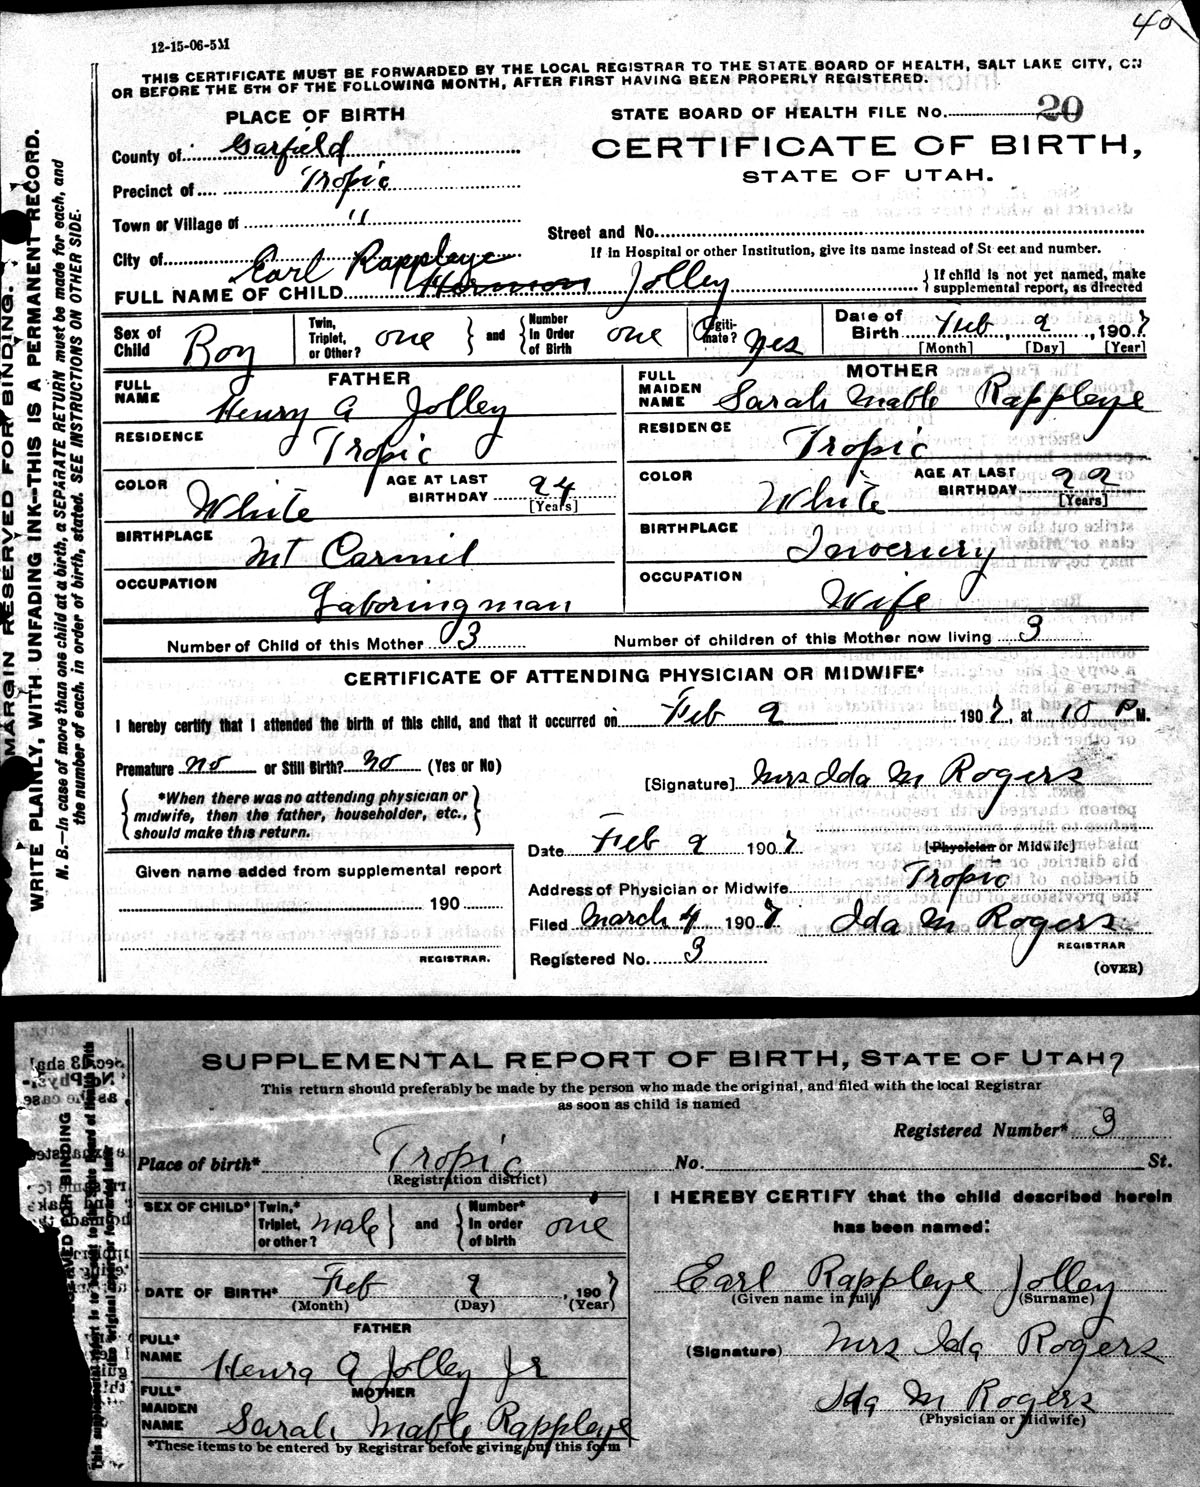 40
12-15-06-5M
THIS CERTIFICATE MUST BE FORWARDED BY THE LOCAL REGISTRAR TO THE STATE BOARD OF HEALTH, SALT LAKE CITY, ON
OR BEFORE THE 5TH OF THE FOLLOWING MONTH, AFTER FIRST HAVING BEEN PROPERLY REGISTERED.
MARGIN RESERVED FOR BINDING.
WRITE PLAINLY, WITH UNFADING INK--THIS IS A PERMANENT RECORD.
N. B.—In case of more than one child at a birth, a SEPARATE RETURN must be made for each, and
the number of each, in order of birth, stated. SEE INSTRUCTIONS ON OTHER SIDE.
PLACE OF BIRTH
County of Garfield
Precinct of Tropic
Town or Village of "
City of
STATE BOARD OF HEALTH FILE No. 20
CERTIFICATE OF BIRTH,
STATE OF UTAH.
Street and No.
If in Hospital or other Institution, give its name instead of St eet and number.
Earl Rappleye
FULL NAME OF CHILD Hermon Jolley
If child is not yet named, make
supplemental report, as directed
Sex of Child Boy
Twin, Triplet, or Other? one and Number In Order of Birth one
Legiti-mate? yes
Date of Birth Feb 9, 1907
[Month] [Day] [Year]
FATHER
FULL NAME Henry A Jolley
RESIDENCE Tropic
COLOR White AGE AT LAST BIRTHDAY 24 [Years]
BIRTHPLACE Mt Carmil
OCCUPATION Laboringman
MOTHER
FULL MAIDEN NAME Sarah Mable Rappleye
RESIDENCE Tropic
COLOR White AGE AT LAST BIRTHDAY 22 [Years]
BIRTHPLACE Inverury
OCCUPATION Wife
Number of Child of this Mother 3 Number of children of this Mother now living 3
CERTIFICATE OF ATTENDING PHYSICIAN OR MIDWIFE*
I hereby certify that I attended the birth of this child, and that it occurred on Feb 9 1907, at 10 P M.
Premature no or Still Birth? no (Yes or No)
*When there was no attending physician or
midwife, then the father, householder, etc.,
should make this return.
[Signature] Mrs Ida M Rogers
[Physician or Midwife]
Date Feb 9 1907
Address of Physician or Midwife Tropic
Filed March 4 1907 Ida M Rogers
REGISTRAR
Registered No. 3
(OVER)
Given name added from supplemental report
190
REGISTRAR.
SUPPLEMENTAL REPORT OF BIRTH, STATE OF UTAH
This return should preferably be made by the person who made the original, and filed with the local Registrar
as soon as child is named
Registered Number* 3
Place of birth* Tropic No. St.
(Registration district)
SEX OF CHILD* Twin,* Triplet, or other? male and Number* In order of birth one
DATE OF BIRTH* Feb 9, 1907
(Month) (Day) (Year)
FATHER
FULL* NAME Henra A Jolley Jr
MOTHER
FULL* MAIDEN NAME Sarah Mable Rappleye
*These items to be entered by Registrar before giving out this form
I HEREBY CERTIFY that the child described herein
has been named:
Earl Rappleye Jolley
(Given name in full) (Surname)
(Signature) Mrs Ida Rogers
Ida M Rogers
(Physician or Midwife)